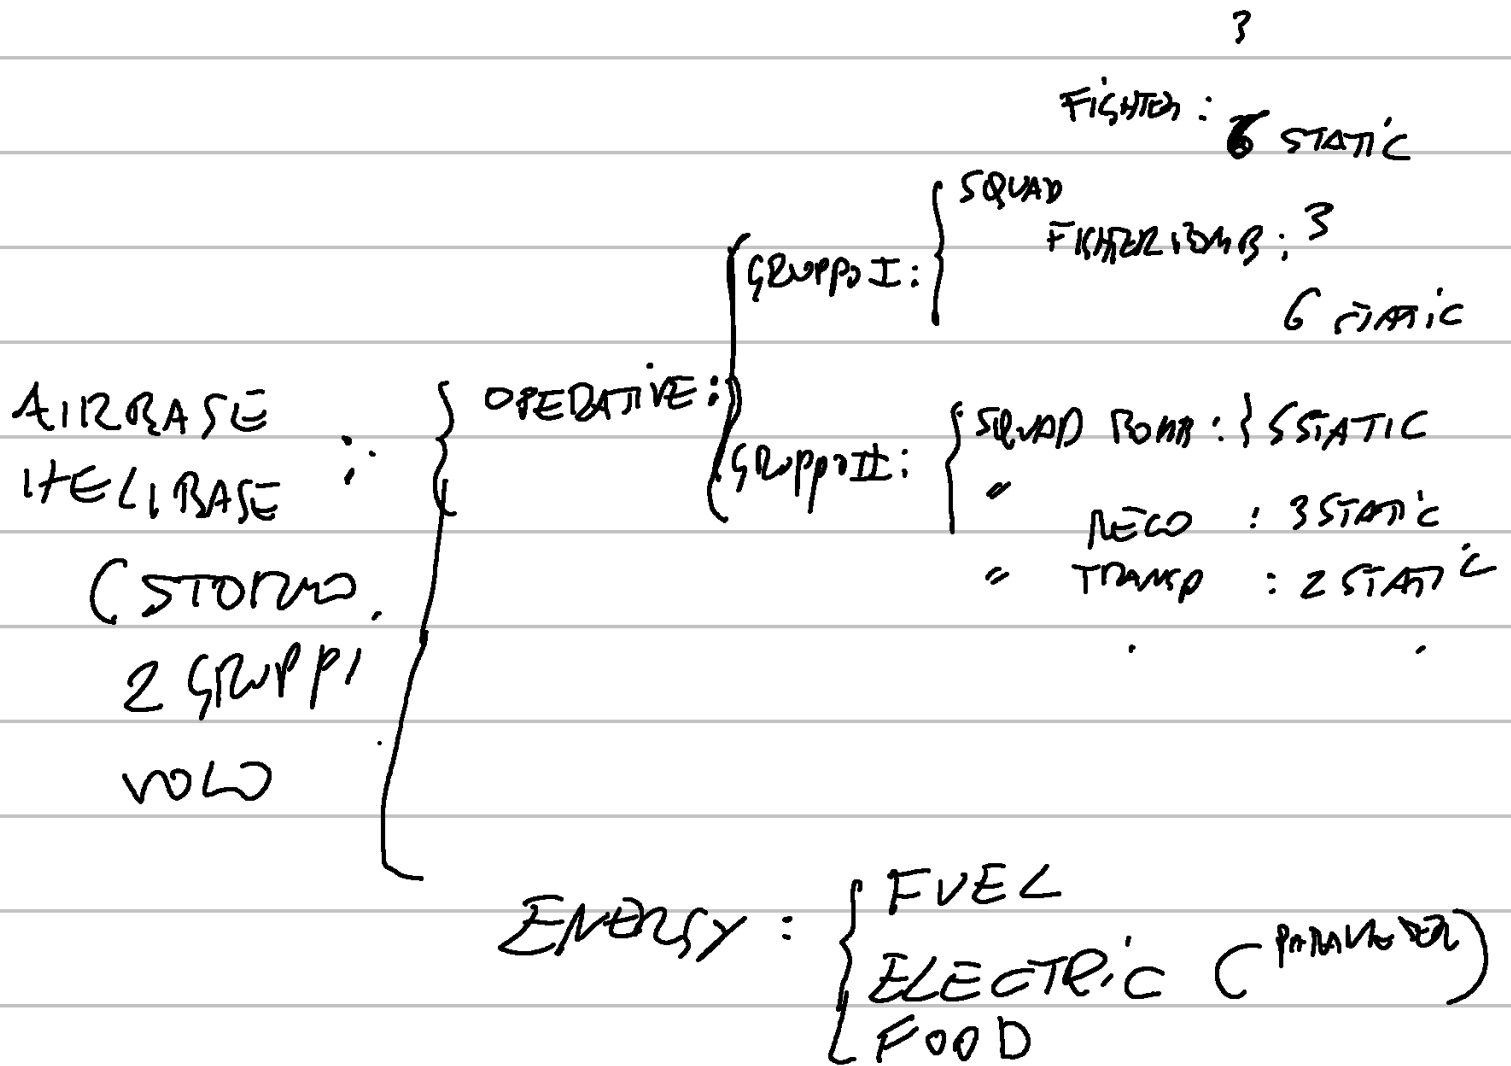 3
FIGHTER :
6 STATIC
SQUAD
FIGHTER BOMB : 3
GRUPPO I :
6 STATIC
AIRBASE
HELIBASE :
OPERATIVE :
GRUPPO II :
SQUAD BOMB : 5 STATIC
" RECO : 3 STATIC
" TRANSP : 2 STATIC
(STORMO.
2 GRUPPI
VOLO
ENERGY :
FUEL
ELECTRIC (PARAMETER)
FOOD